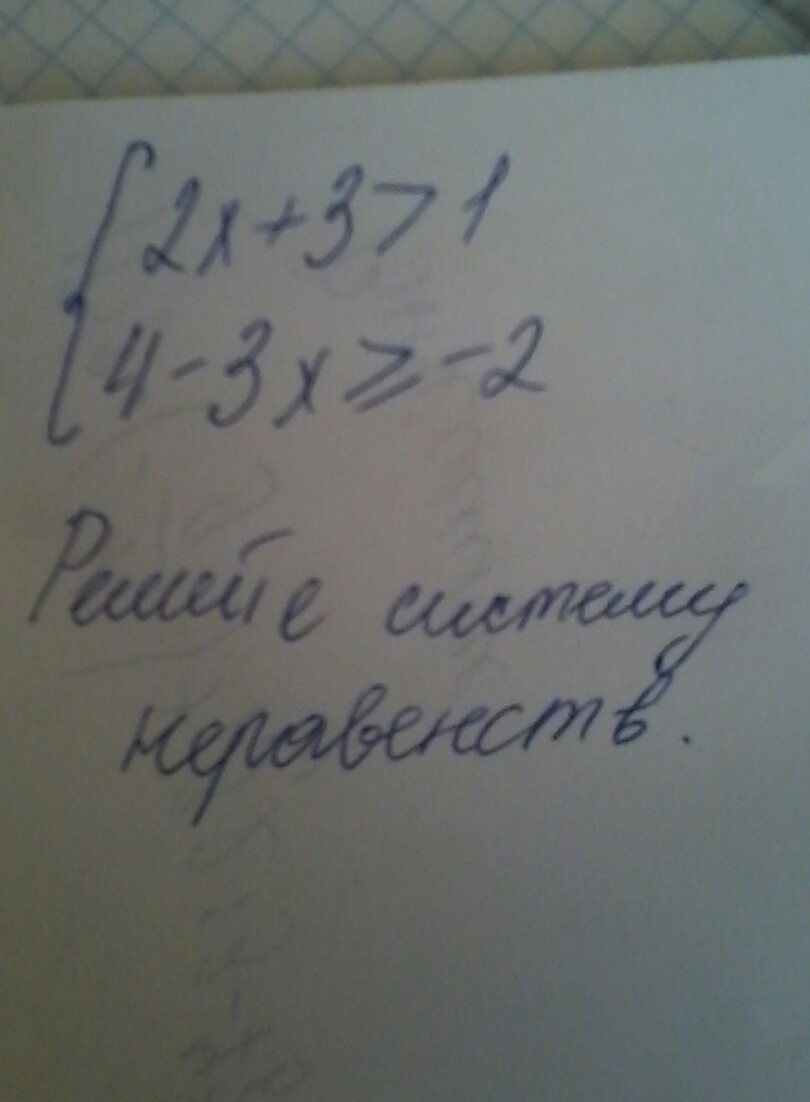 2x+3>1
4-3x≥-2
Решите систему
неравенств.